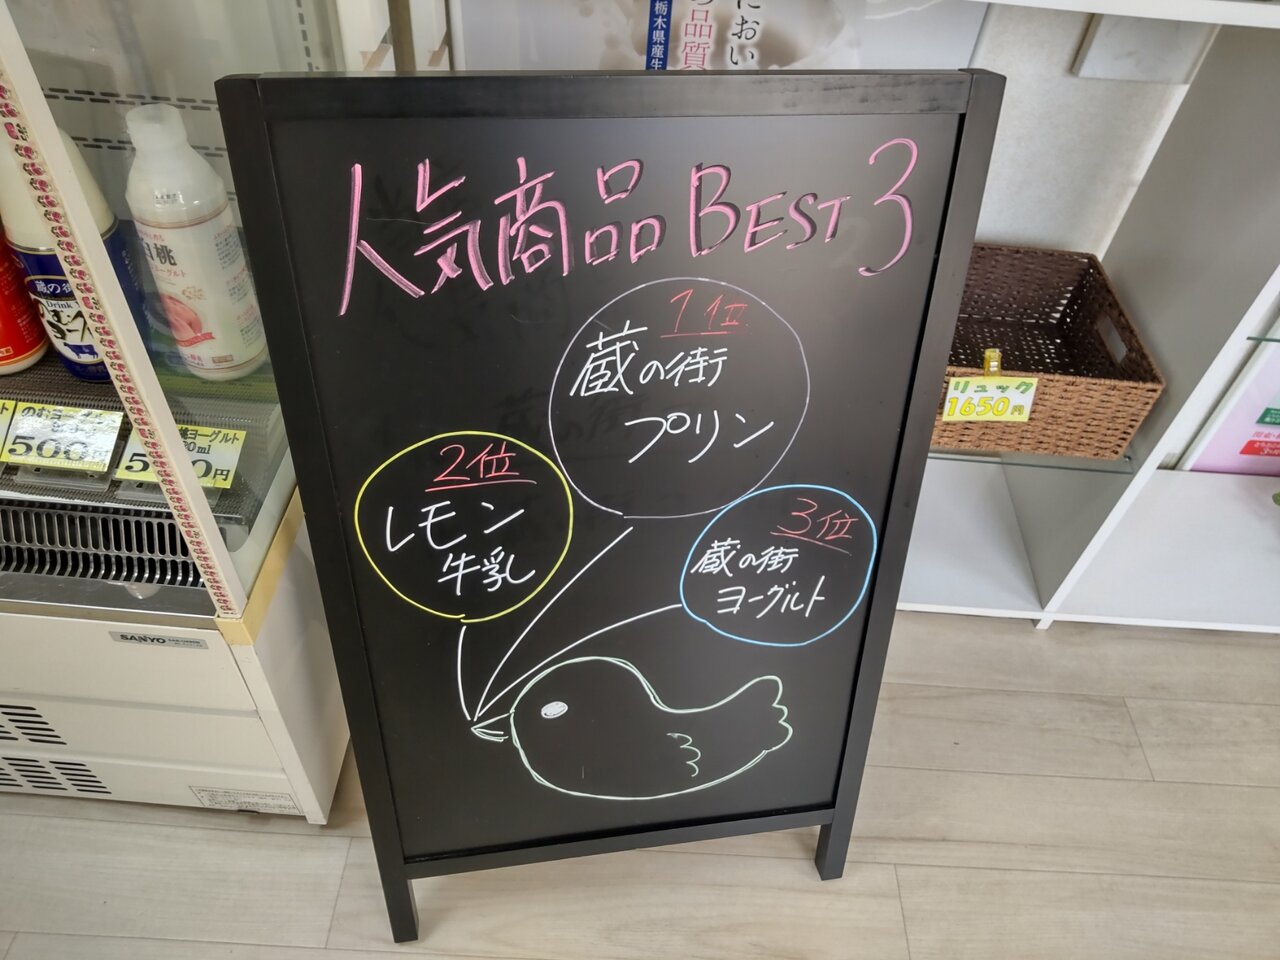 におい
品質
栃木県産生
人気商品BEST3
1位
蔵の街
プリン
2位
レモン
牛乳
3位
蔵の街
ヨーグルト
白桃
ヨーグルト
蔵の街
Drink
500
桃ヨーグルト
円
SANYO
リュック
1650円